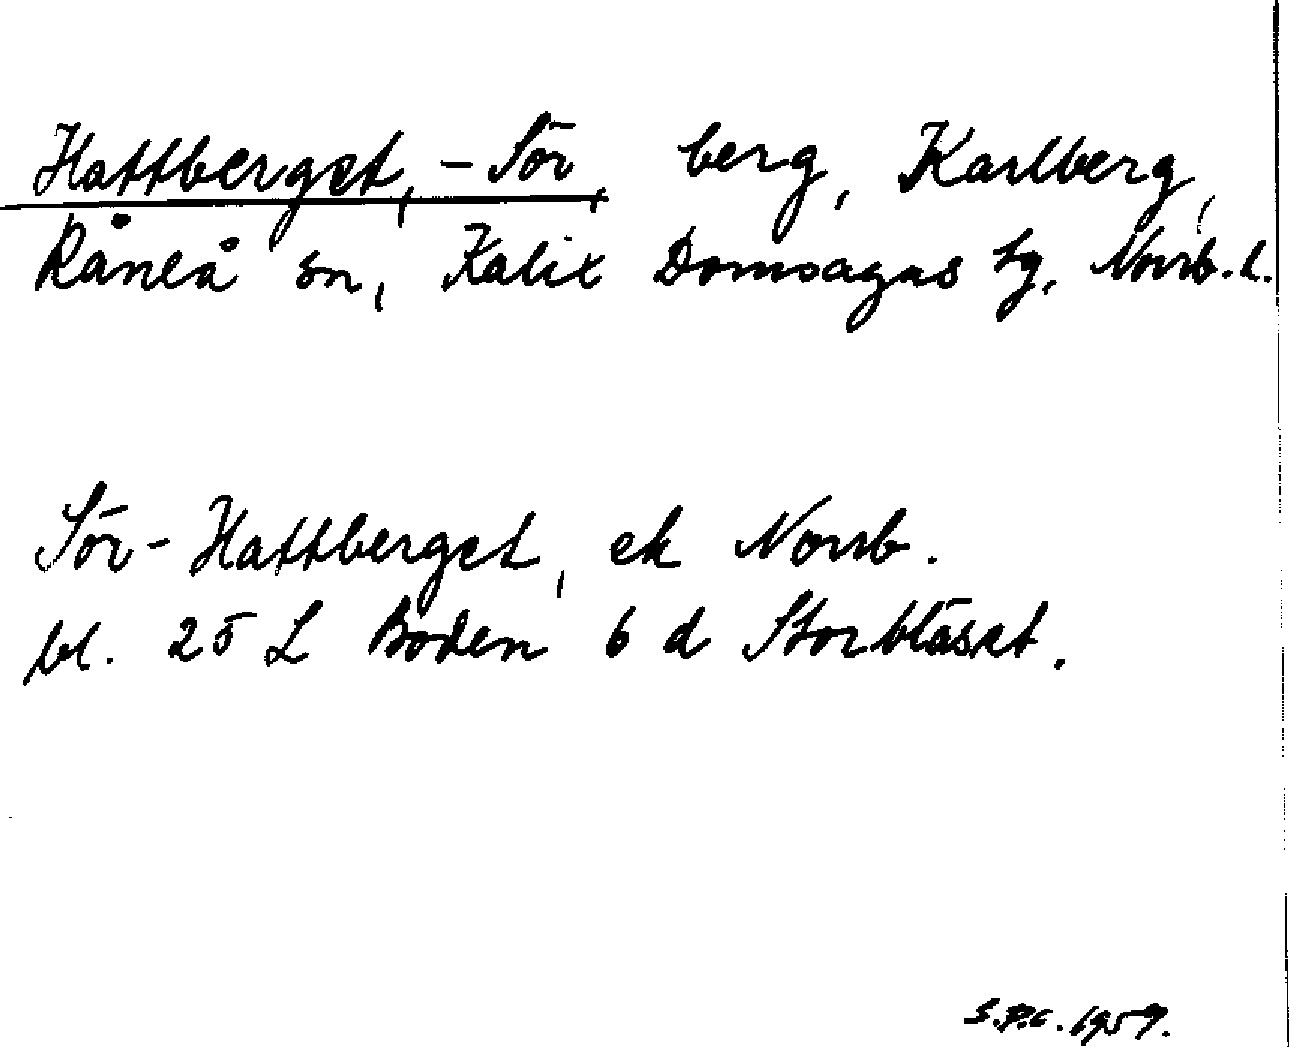 Hattberget, -Sör, berg, Karlberg,
Råneå sn, Kalix Domsagas tg, Norrb. l.
Sör-Hattberget, ek Norrb.
bl. 25 L Boden 6 d Storblåset.
S.P.C. 1959.